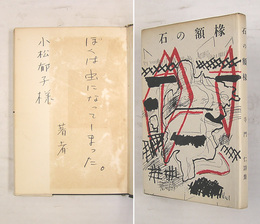 ぼくは虫になってしまった。
著者
小松郁子様
石の額椽
石の額椽